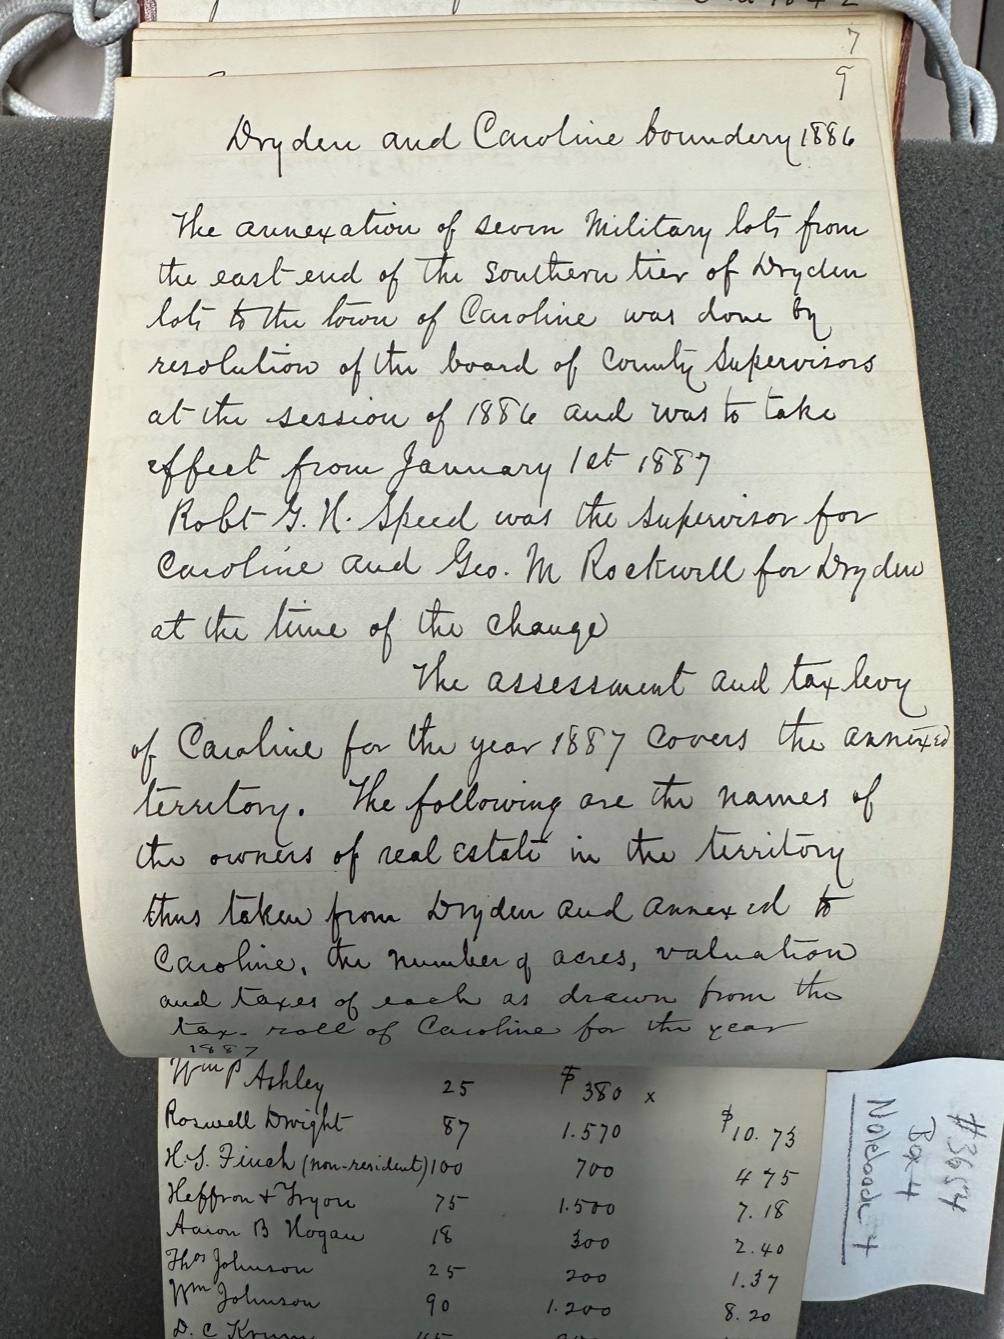 7
9
Dryden and Caroline boundery 1886
The annexation of seven Military lots from
the east end of the southern tier of Dryden
lots to the town of Caroline was done by
resolution of the board of County Supervisors
at the session of 1886 and was to take
effect from January 1st 1887
Robt G. H. Speed was the Supervisor for
Caroline and Geo. M Rockwell for Dryden
at the time of the change
The assessment and tax levy
of Caroline for the year 1887 covers the annexed
territory. The following are the names of
the owners of real estate in the territory
thus taken from Dryden and annexed to
Caroline, the number of acres, valuation
and taxes of each as drawn from the
tax-roll of Caroline for the year
1887
Wm P Ashley 25 $380 x
Roswell Dwight 87 1.570 $10.73
H. S. Finch (non-resident) 100 700 4 75
Heffron & Tryon 75 1.500 7.18
Aaron B Hogan 18 300 2.40
Thos Johnson 25 200 1.37
Wm Johnson 90 1.200 8.20
D. C Krum
#3654
Box 4
Notebook 4